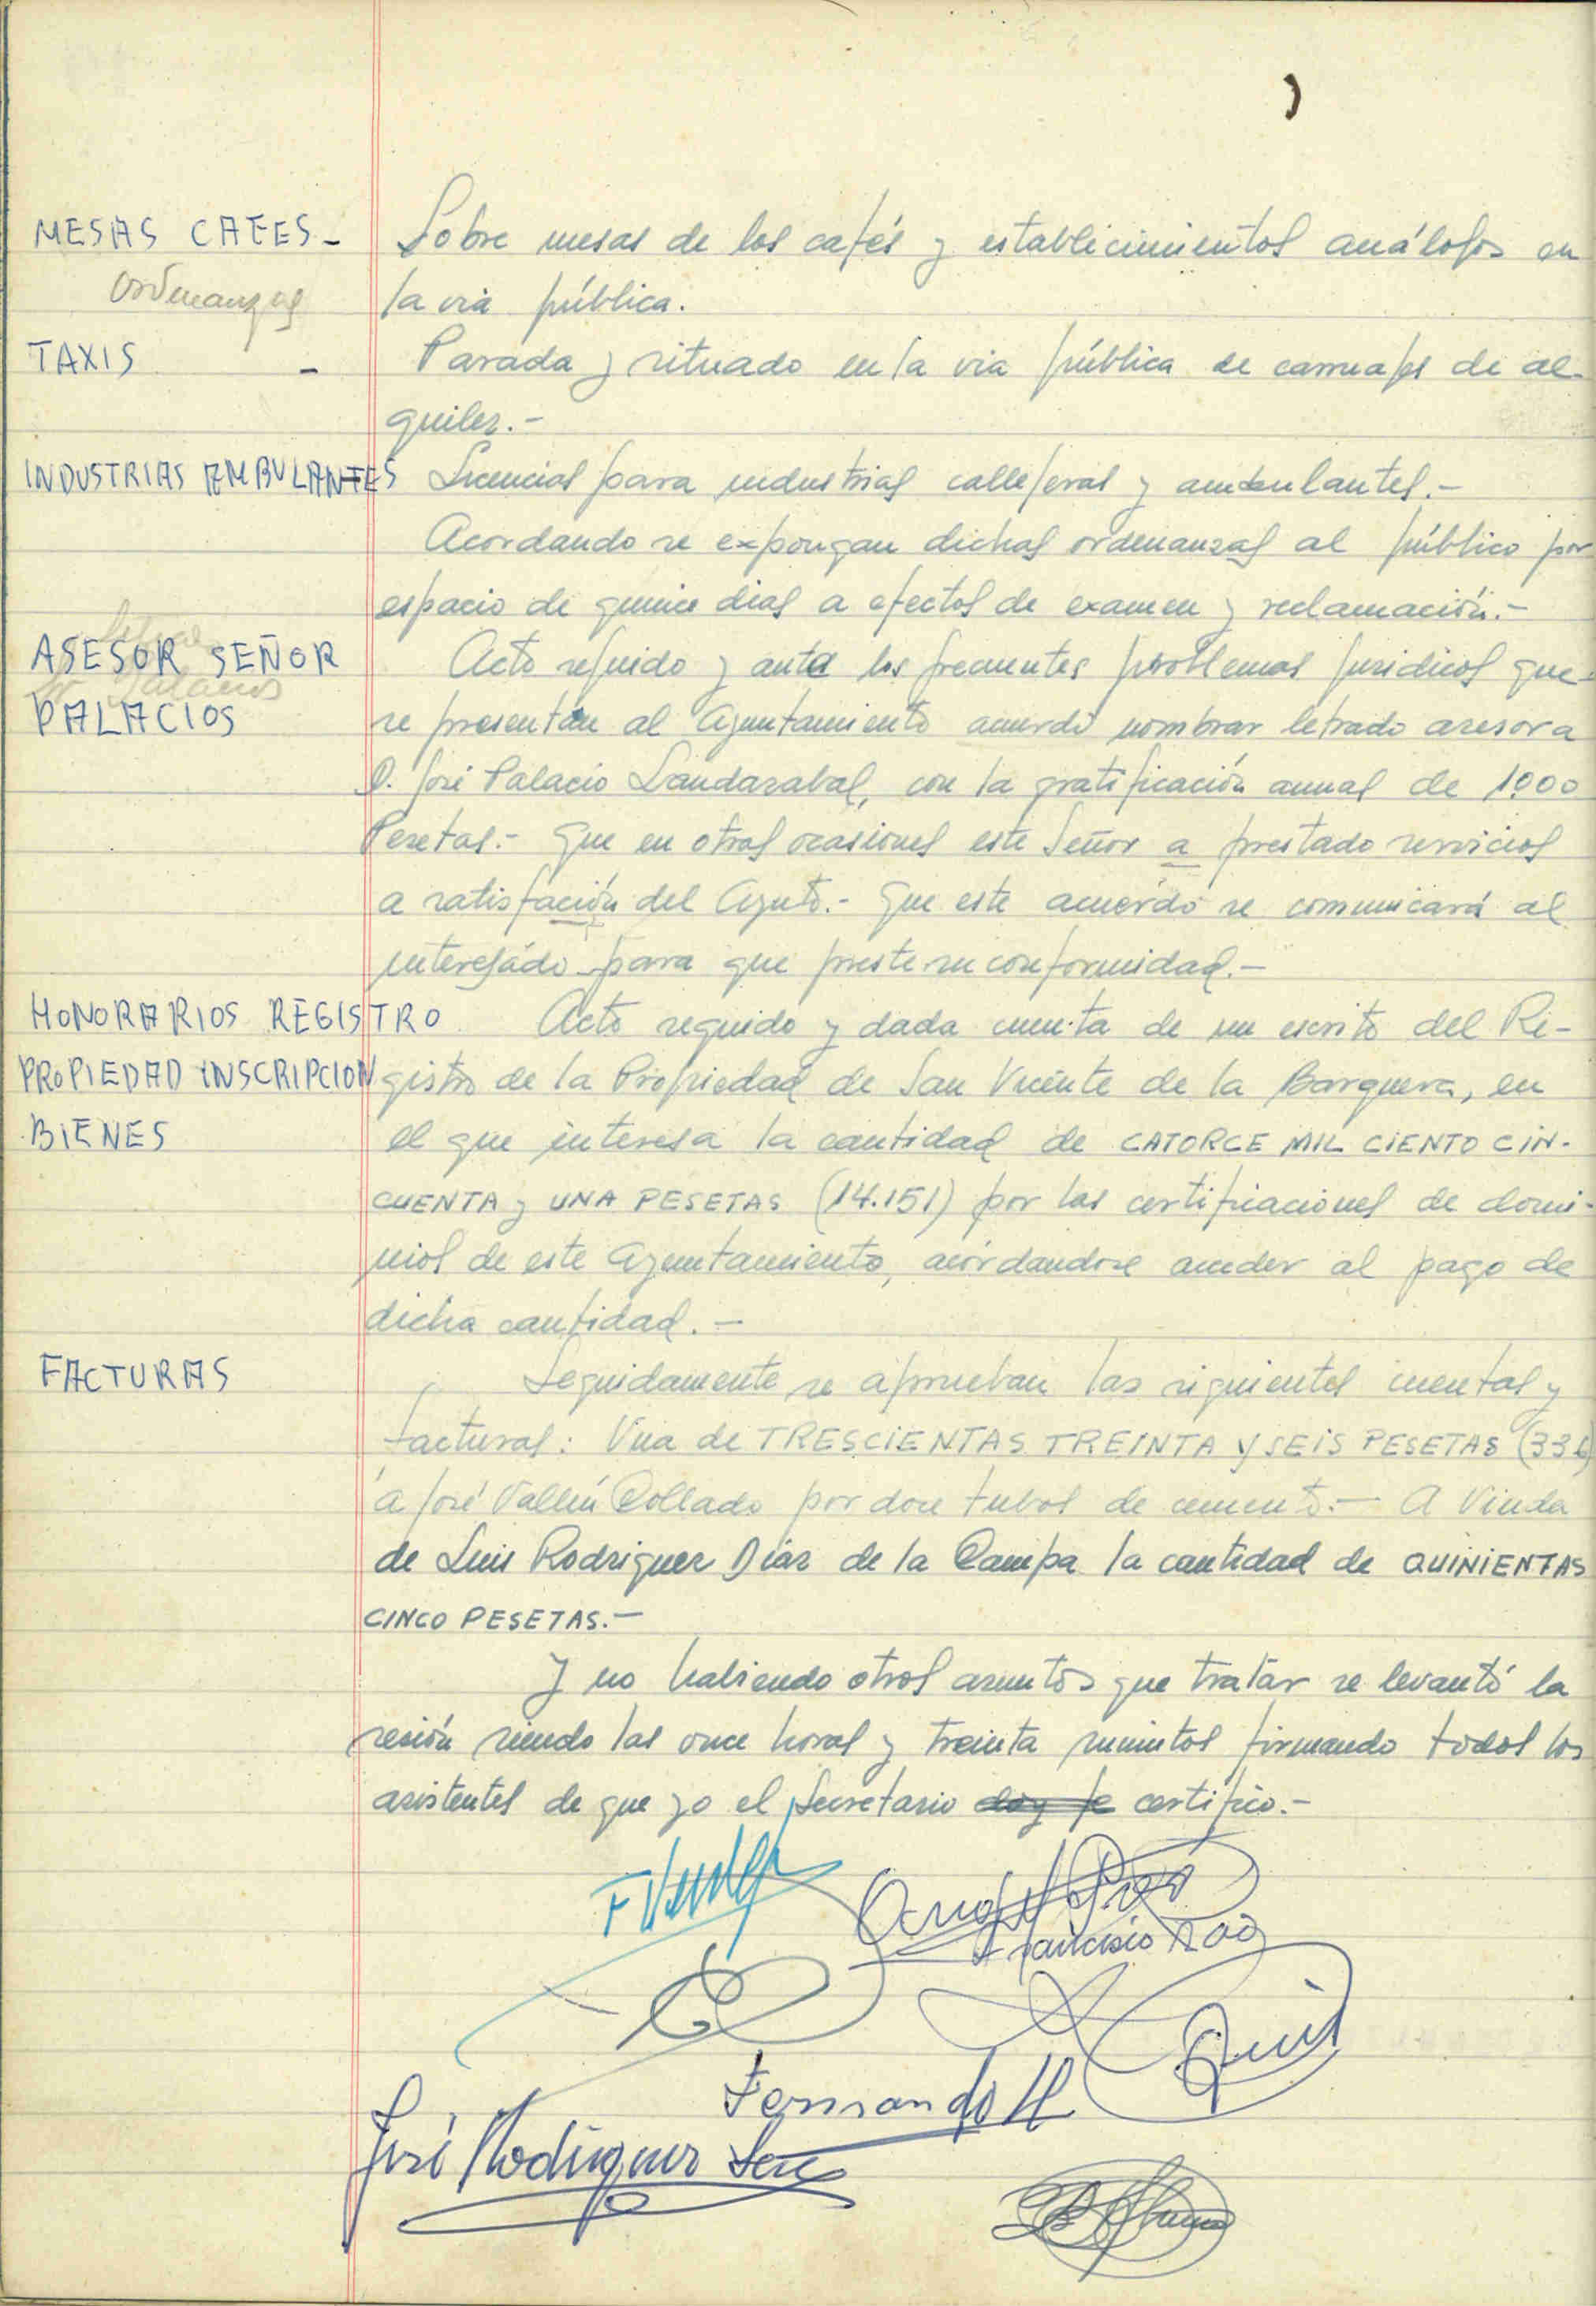 MESAS CAFES -
Ordenanzas
Sobre mesas de los cafés y establecimientos análogos en
la via pública.
TAXIS -
Parada y situado en la via pública de carruajes de al-
quiler.-
INDUSTRIAS AMBULANTES
Licencias para industrias callejeras y ambulantes.-
Acordando se expongan dichas ordenanzas al público por
espacio de quince dias a efectos de examen y reclamación.-
ASESOR SEÑOR
PALACIOS
Acto seguido y ante los frecuentes problemas juridicos que
se presentan al Ayuntamiento acordó nombrar letrado asesor a
D. José Palacio Landazabal, con la gratificación anual de 1000
Pesetas.- Que en otras ocasiones este Señor a prestado servicios
a satisfación del Aynto.- Que este acuerdo se comunicará al
interesado para que preste su conformidad.-
HONORARIOS REGISTRO
PROPIEDAD INSCRIPCION
BIENES
Acto seguido y dada cuenta de un escrito del Re-
gistro de la Propiedad de San Vicente de la Barquera, en
el que interesa la cantidad de CATORCE MIL CIENTO CIN-
CUENTA y UNA PESETAS (14.151) por las certificaciones de domi-
nios de este Ayuntamiento, acórdandose acceder al pago de
dicha cantidad.-
FACTURAS
Seguidamente se aprueban las siguientes cuentas y
facturas: Una de TRESCIENTAS TREINTA Y SEIS PESETAS (336)
a José Vallín Collado por doce tubos de cemento.- A Viuda
de Luis Rodriguez Diaz de la Campa la cantidad de QUINIENTAS
CINCO PESETAS.-
Y no habiendo otros asuntos que tratar se levantó la
sesión siendo las once horas y treinta minutos firmando todos los
asistentes de que yo el Secretario doy fe certifico.-
Francisco
Fernando
José Rodriguez